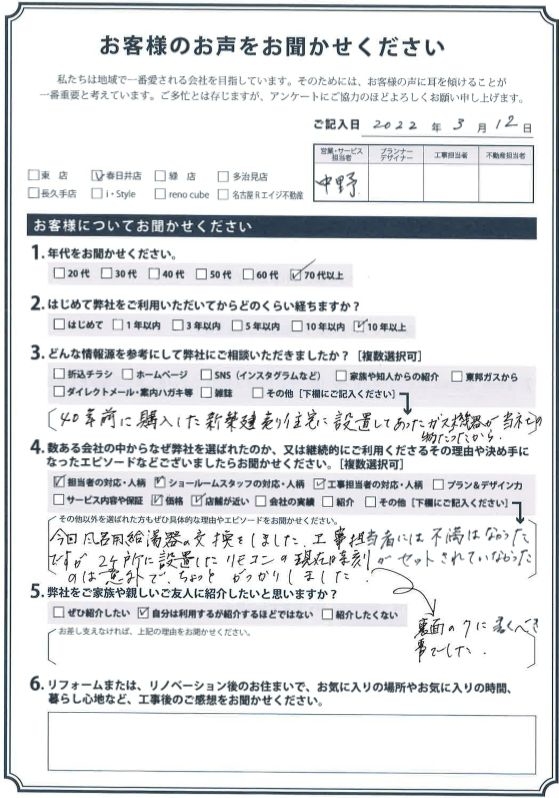 お客様のお声をお聞かせください
私たちは地域で一番愛される会社を目指しています。そのためには、お客様の声に耳を傾けることが
一番重要と考えています。ご多忙とは存じますが、アンケートにご協力のほどよろしくお願い申し上げます。
ご記入日 2022 年 3 月 12 日
営業・サービス担当者 プランナーデザイナー 工事担当者 不動産担当者
中野
□東 店 ☑春日井店 □緑 店 □多治見店
□長久手店 □i・Style □reno cube □名古屋Rエイジ不動産
お客様についてお聞かせください
1. 年代をお聞かせください。
□20代 □30代 □40代 □50代 □60代 ☑70代以上
2. はじめて弊社をご利用いただいてからどのくらい経ちますか?
□はじめて □1年以内 □3年以内 □5年以内 □10年以内 ☑10年以上
3. どんな情報源を参考にして弊社にご相談いただきましたか?[複数選択可]
□折込チラシ □ホームページ □SNS(インスタグラムなど) □家族や知人からの紹介 □東邦ガスから
□ダイレクトメール・案内ハガキ等 □雑誌 □その他[下欄にご記入ください]
40年前に購入した新築建売り住宅に設置してあったガス機器が当社の
物だったから.
4. 数ある会社の中からなぜ弊社を選ばれたのか、又は継続的にご利用くださるその理由や決め手
になったエピソードなどございましたらお聞かせください。[複数選択可]
☑担当者の対応・人柄 ☑ショールームスタッフの対応・人柄 ☑工事担当者の対応・人柄 □プラン&デザイン力
□サービス内容や保証 ☑価格 ☑店舗が近い □会社の実績 □紹介 □その他[下欄にご記入ください]
その他以外を選ばれた方もぜひ具体的な理由やエピソードをお聞かせください。
今回風呂用給湯器の交換をしました. 工事担当者には不満はなかった
ですが 2ヶ所に設置したリモコンの現在時刻がセットされていなかった
のは意外で、ちょっとがっかりしました.
5. 弊社をご家族や親しいご友人に紹介したいと思いますか?
□ぜひ紹介したい ☑自分は利用するが紹介するほどではない □紹介したくない
お差し支えなければ、上記の理由をお聞かせください。
裏面の7に書くべき
事でした.
6. リフォームまたは、リノベーション後のお住まいで、お気に入りの場所やお気に入りの時間、
暮らし心地など、工事後のご感想をお聞かせください。